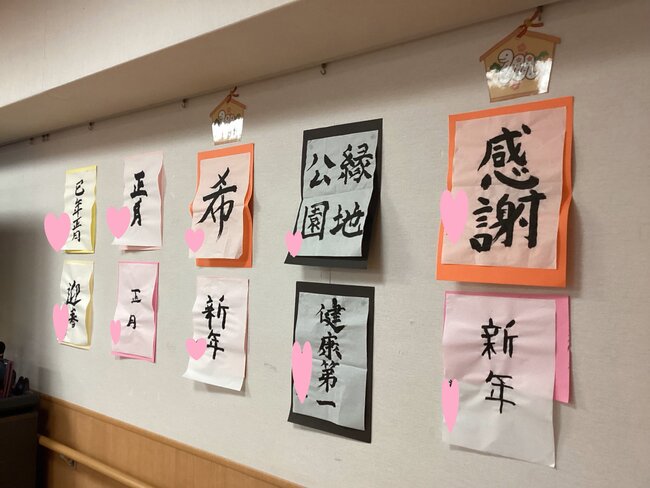 感謝
縁地
公園
希
正月
巳年正月
新年
健康第一
新年
正月
迎春